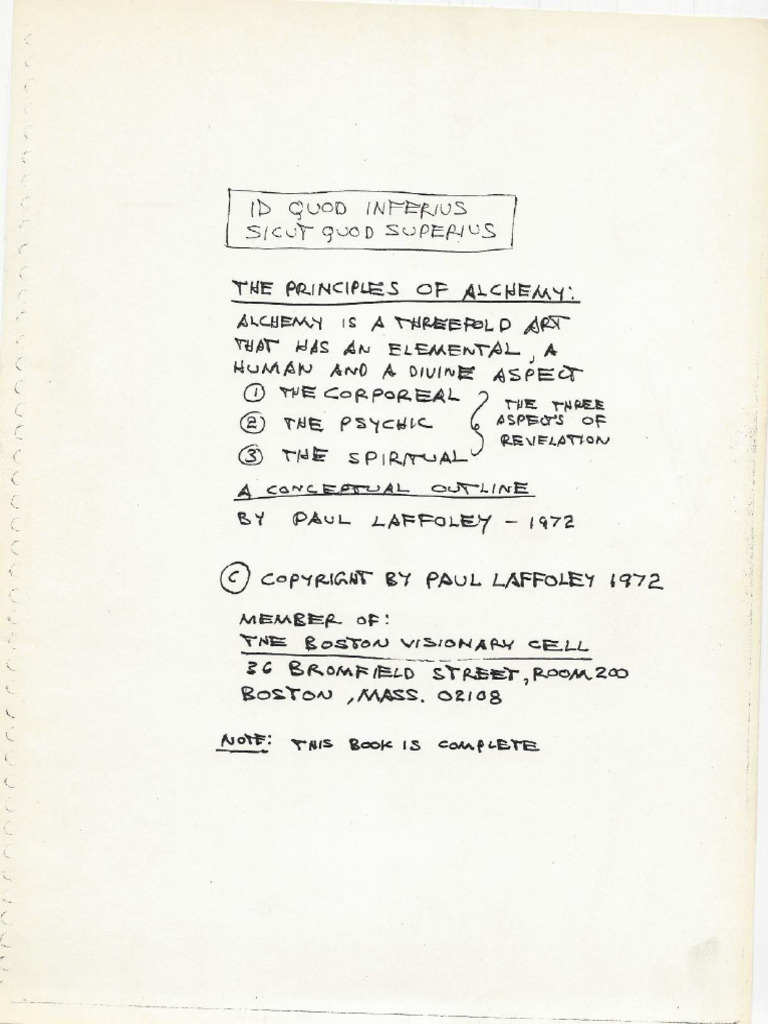 ID QUOD INFERIUS
SICUT QUOD SUPERIUS
THE PRINCIPLES OF ALCHEMY:
ALCHEMY IS A THREEFOLD ART
THAT HAS AN ELEMENTAL, A
HUMAN AND A DIVINE ASPECT
① THE CORPOREAL
② THE PSYCHIC
③ THE SPIRITUAL
THE THREE
ASPECTS OF
REVELATION
A CONCEPTUAL OUTLINE
BY PAUL LAFFOLEY – 1972
© COPYRIGHT BY PAUL LAFFOLEY 1972
MEMBER OF:
THE BOSTON VISIONARY CELL
36 BROMFIELD STREET, ROOM 200
BOSTON, MASS. 02108
NOTE: THIS BOOK IS COMPLETE